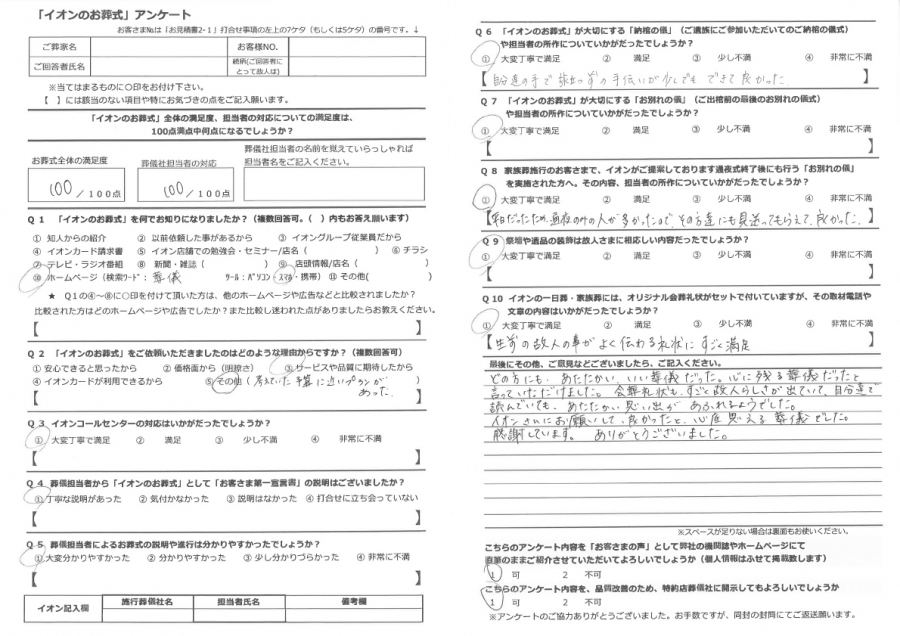 「イオンのお葬式」アンケート
お客さまNoは「お見積書2-1」打合せ事項の左上の7ケタ（もしくは5ケタ）の番号です。↓
ご葬家名
お客様NO.
ご回答者氏名
続柄(ご回答者にとって故人は)
※当てはまるものに〇印をお付け下さい。
【　】には該当のない項目や特にお気づきの点をご記入願います。
「イオンのお葬式」全体の満足度、担当者の対応についての満足度は、
100点満点中何点になるでしょうか？
お葬式全体の満足度
葬儀社担当者の対応
葬儀社担当者の名前を覚えていらっしゃれば
担当者名をご記入ください。
100 / 100点
100 / 100点
Q 1 「イオンのお葬式」を何でお知りになりましたか？（複数回答可。（ ）内もお答え願います）
① 知人からの紹介 ② 以前依頼した事があるから ③ イオングループ従業員だから
④ イオンカード請求書 ⑤ イオン店舗での勉強会・セミナー/店名（ ） ⑥ チラシ
⑦ テレビ・ラジオ番組 ⑧ 新聞・雑誌（ ） ⑨ 店頭情報/店名（ ）
⑩ ホームページ（検索ワード： 葬儀 ツール：パソコン・スマホ・携帯） ⑪ その他( )
★ Q1の④～⑧に〇印を付けて頂いた方は、他のホームページや広告などと比較されましたか？
比較された方はどのホームページや広告でしたか？また比較し迷われた点がありましたらお教えください。
【 】
Q 2 「イオンのお葬式」をご依頼いただきましたのはどのような理由からですか？（複数回答可）
① 安心できると思ったから ② 価格面から（明瞭さ） ③ サービスや品質に期待したから
④ イオンカードが利用できるから ⑤ その他（考えていた予算に近いプランが
【 あった。 】
Q 3 イオンコールセンターの対応はいかがだったでしょうか？
① 大変丁寧で満足 ② 満足 ③ 少し不満 ④ 非常に不満
【 】
Q 4 葬儀担当者から「イオンのお葬式」として「お客さま第一宣言書」の説明はございましたか？
① 丁寧な説明があった ② 気付かなかった ③ 説明はなかった ④ 打合せに立ち会っていない
【 】
Q 5 葬儀担当者によるお葬式の説明や進行は分かりやすかったでしょうか？
① 大変分かりやすかった ② 分かりやすかった ③ 少し分かりづらかった ④ 非常に不満
【 】
イオン記入欄
施行葬儀社名
担当者氏名
備考欄
Q 6 「イオンのお葬式」が大切にする「納棺の儀」（ご遺族にご参加いただいてのご納棺の儀式）
や担当者の所作についていかがだったでしょうか？
① 大変丁寧で満足 ② 満足 ③ 少し不満 ④ 非常に不満
【自分達の手で 旅立つ 手伝いが少しでも できて良かった 】
Q 7 「イオンのお葬式」が大切にする「お別れの儀」（ご出棺前の最後のお別れの儀式）
や担当者の所作についていかがだったでしょうか？
① 大変丁寧で満足 ② 満足 ③ 少し不満 ④ 非常に不満
【 】
Q 8 家族葬施行のお客さまで、イオンがご提案しております通夜式終了後にも行う「お別れの儀」
を実施された方へ。その内容、担当者の所作についていかがだったでしょうか？
① 大変丁寧で満足 ② 満足 ③ 少し不満 ④ 非常に不満
【平日だったため、通夜のみの人が多かったので、その方達にも見送ってもらえて、良かった。】
Q 9 祭壇や遺品の装飾は故人さまに相応しい内容だったでしょうか？
① 大変丁寧で満足 ② 満足 ③ 少し不満 ④ 非常に不満
【 】
Q 10 イオンの一日葬・家族葬には、オリジナル会葬礼状がセットで付いていますが、その取材電話や
文章の内容はいかがだったでしょうか？
① 大変丁寧で満足 ② 満足 ③ 少し不満 ④ 非常に不満
【生前の故人の事がよく伝わる礼状に すごく満足 】
最後にその他、ご意見などございましたら、ご記入ください。
どの方にも、あたたかい、いい葬儀だった。心に残る葬儀だったと
言っていただけました。会葬礼状も、すごく故人らしさが出ていて、自分達で
読んでいても、あたたかい思い出が あふれるようでした。
イオンさんにお願いして、良かったと、心底思える葬儀でした。
感謝しています。 ありがとうございました。
※スペースが足りない場合は裏面もお使いください。
こちらのアンケート内容を「お客さまの声」として弊社の機関誌やホームページにて
直筆のままご紹介させていただいてよろしいでしょうか（個人情報はふせて掲載致します）
1 可 2 不可
こちらのアンケート内容を、品質改善のため、特約店葬儀社に開示してもよろしいでしょうか
1 可 2 不可
※アンケートのご協力ありがとうございました。お手数ですが、同封の封筒にてご返送願います。